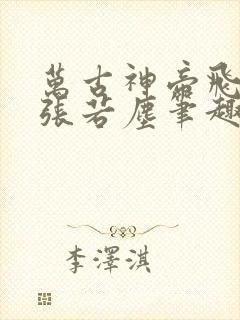 萬古神帝飛
張若塵筆趣
李澤淇